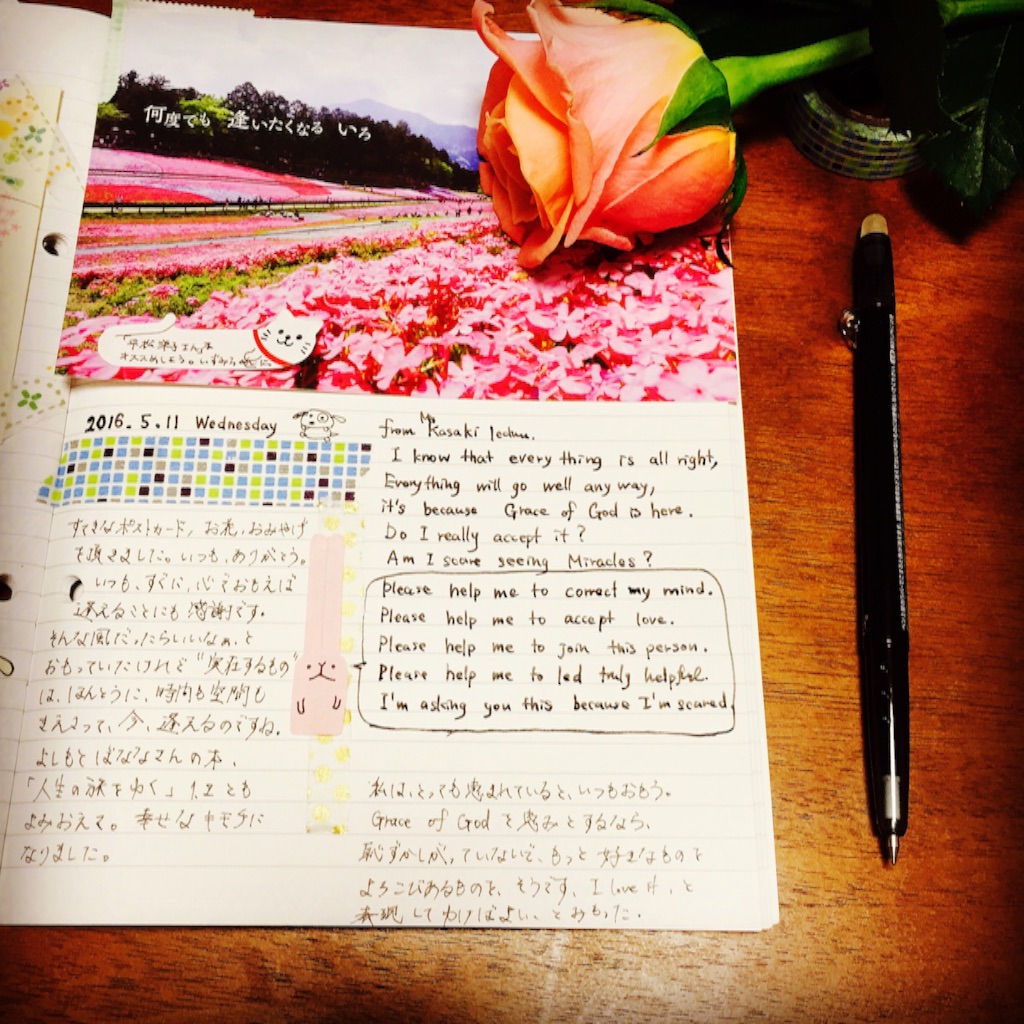 何度でも 逢いたくなる いろ
オススメしよう。
2016.5.11 Wednesday
すてきなポストカード, お花, おみやげ
を頂きました。いつも、ありがとう。
いつも、すぐに、心でおもえば
逢えることにも 感謝です。
そんな風だったらいいなぁ、と
おもっていたけれど "実在するもの"
は、ほんとうに、時間も空間も
きえさって、今、逢えるのですね。
よしもと ばななさんの本、
「人生の旅をゆく」1.2とも
よみおえて。幸せなキモチに
なりました。
from Ms Kasaki
I know that every thing is all right,
Everything will go well any way,
it's because Grace of God is here.
Do I really accept it?
Am I scare seeing Miracles?
Please help me to correct my mind.
Please help me to accept love.
Please help me to join this person.
Please help me to led truly helpful.
I'm asking you this because I'm scared.
私は、とっても恵まれていると、いつもおもう。
Grace of God を恵みとするなら、
恥ずかしがっていないで、もっと 好きなものを
よろこびあるものを、そうです、I love it, と
表現して ゆけばよい、とおもった。